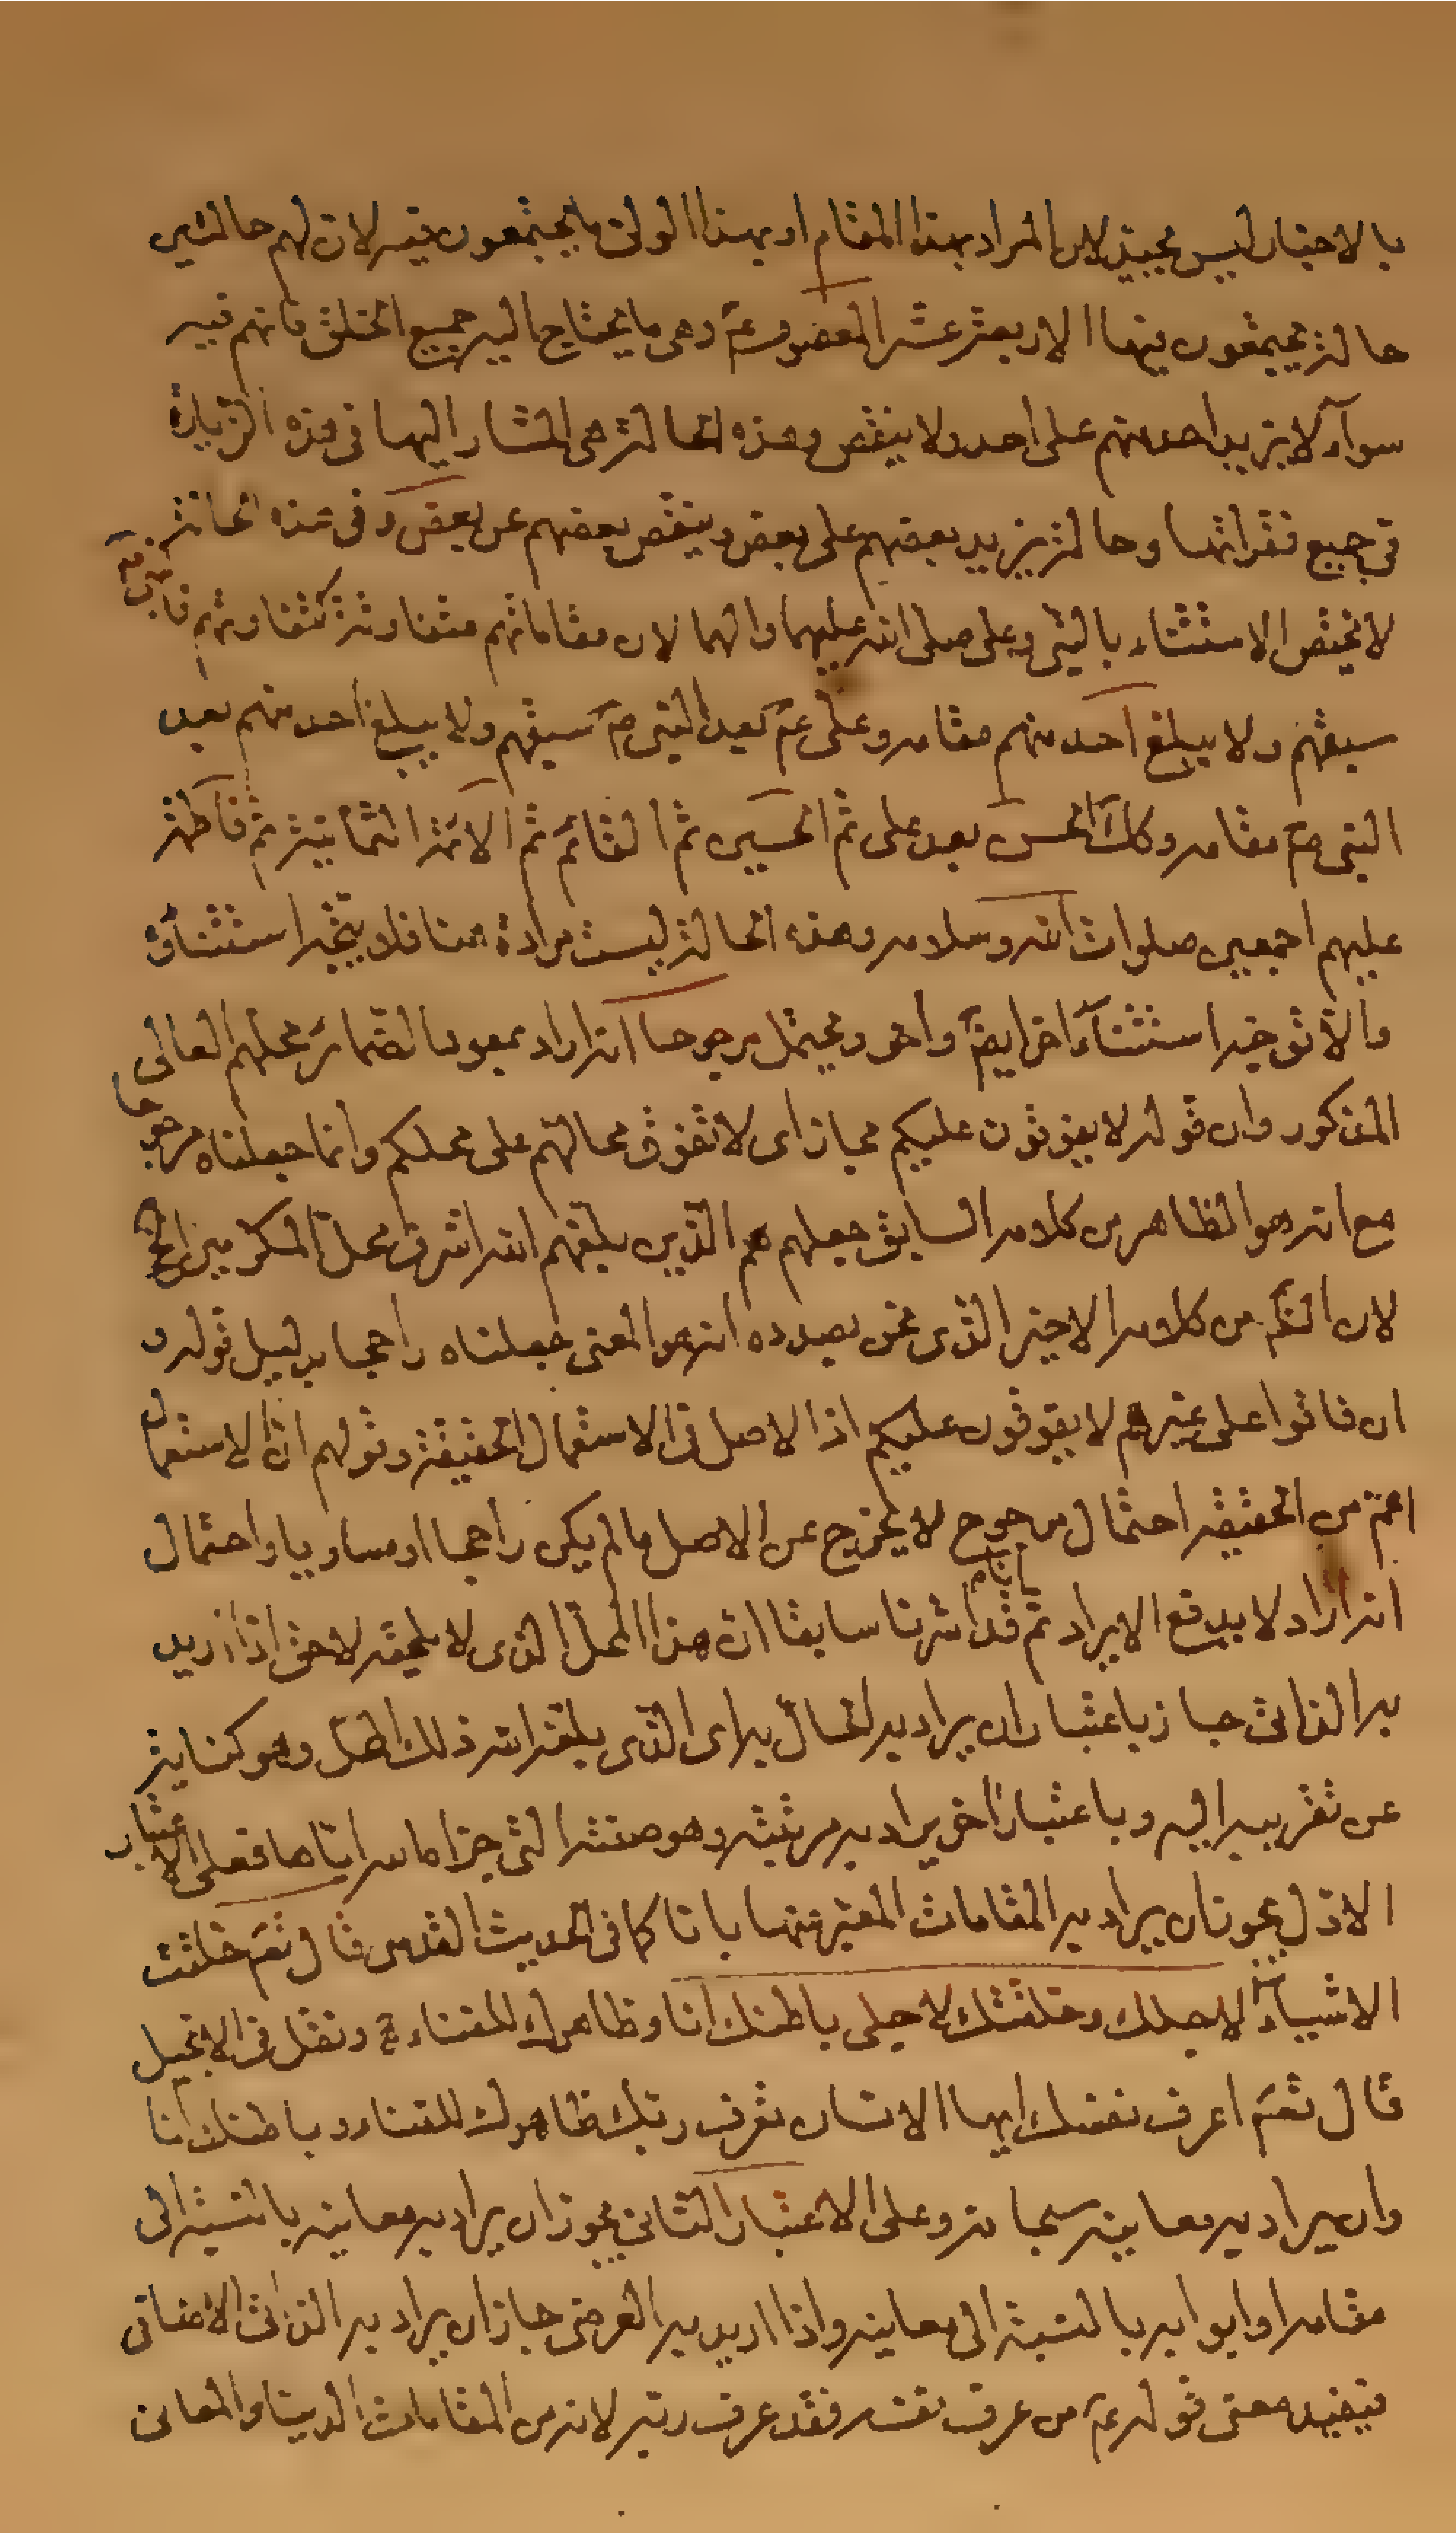 بالاختيار ليس بجيد لان المراد بهذا المقام او بهذا الوقت ما يجتمعون فيه لان لهم حالتين
حالة يجتمعون فيها الاربعة عشر المعصوم عم وهى ما يحتاج اليه جميع الخلق فانهم فيه
سوآء لا يزيد احد منهم على احد ولا ينقص وهذه الحالة هى المشار اليها فى هذه الزيارة
فى جميع فقراتها وحالة يزيد بعضهم على بعض وينقص بعضهم عن بعض وفى هذه الحالة
لا يختص الاستثناء بالنبى وعلى صلى الله عليهما والهما لان مقاماتهم متفاوتة كتفاوتهم فالنبى ص
سبقهم ولا يبلغ احد منهم مقامه وعلى عم بعد النبى ص سبقهم ولا يبلغ احد منهم بعد
النبى ص مقامه وكك الحسن بعد على ثم الحسين ثم القائم ثم الائمة الثمانية ثم فاطمة
عليهم اجمعين صلوات الله وسلامه وهذه الحالة ليست مرادة هنا فلا يتجه استثناؤه
والا توجه استثناء اخر ايض واخر ويحتمل مرجوحا انه اراد بمعود الضمائر محلهم العالى
المذكور وان قوله لا يفوقون عليكم مجاز اى لا تفوق محالهم على محلكم وانما جعلناه مرجوحا
مع انه هو الظاهر من كلامه السابق جعلهم هم الذين بلغهم الله اشرف محل المكرمين الخ
لان الظ من كلامه الاخير الذى نحن بصدده انه هو المعنى جعلناه راجحا بدليل قوله و
ان فاقوا على غيرهم لا يفوقون عليكم اذا الاصل فى الاستعمال الحقيقة وقولهم ان الاستعمال
اعم من الحقيقة احتمال مرجوح لا يخرج عن الاصل ما لم يكن راجحا او مساويا واحتمال
انه اراد لا يدفع الايراد ثم قد اشرنا سابقا ان هذا المحل الذى لا يلحقه لاحق اذا اريد
به الذاتى جاز باعتبار ان يراد به الحال به اى الذى بلغه الله ذلك المحل وهو كناية
عن تقريبه اليه وباعتبار اخر يراد به مرتبته وهو صفته التى جزاؤه اياها فعلى الاعتبار
الاول يجوز ان يراد به المقامات المعبر عنها بانا كما فى الحديث القدسى قال تعم خلقت
الاشياء لاجلك وخلقتك لاجلى باطنك انا وظاهرك للفناء ونقل فى الانجيل
قال تعم اعرف نفسك ايها الانسان تعرف ربك ظاهرك للفناء وباطنك انا
وان يراد به معانيه سبحانه وعلى الاعتبار الثانى يجوز ان يراد به معانيه بالنسبة الى
مقامه او ابوابه بالنسبة الى معانيه واذا اريد به العرضى جاز ان يراد به الذاتى الاضافى
فيفيد معنى قوله عم من عرف نفسه فقد عرف ربه لانه من المقامات الدنيا والمعانى